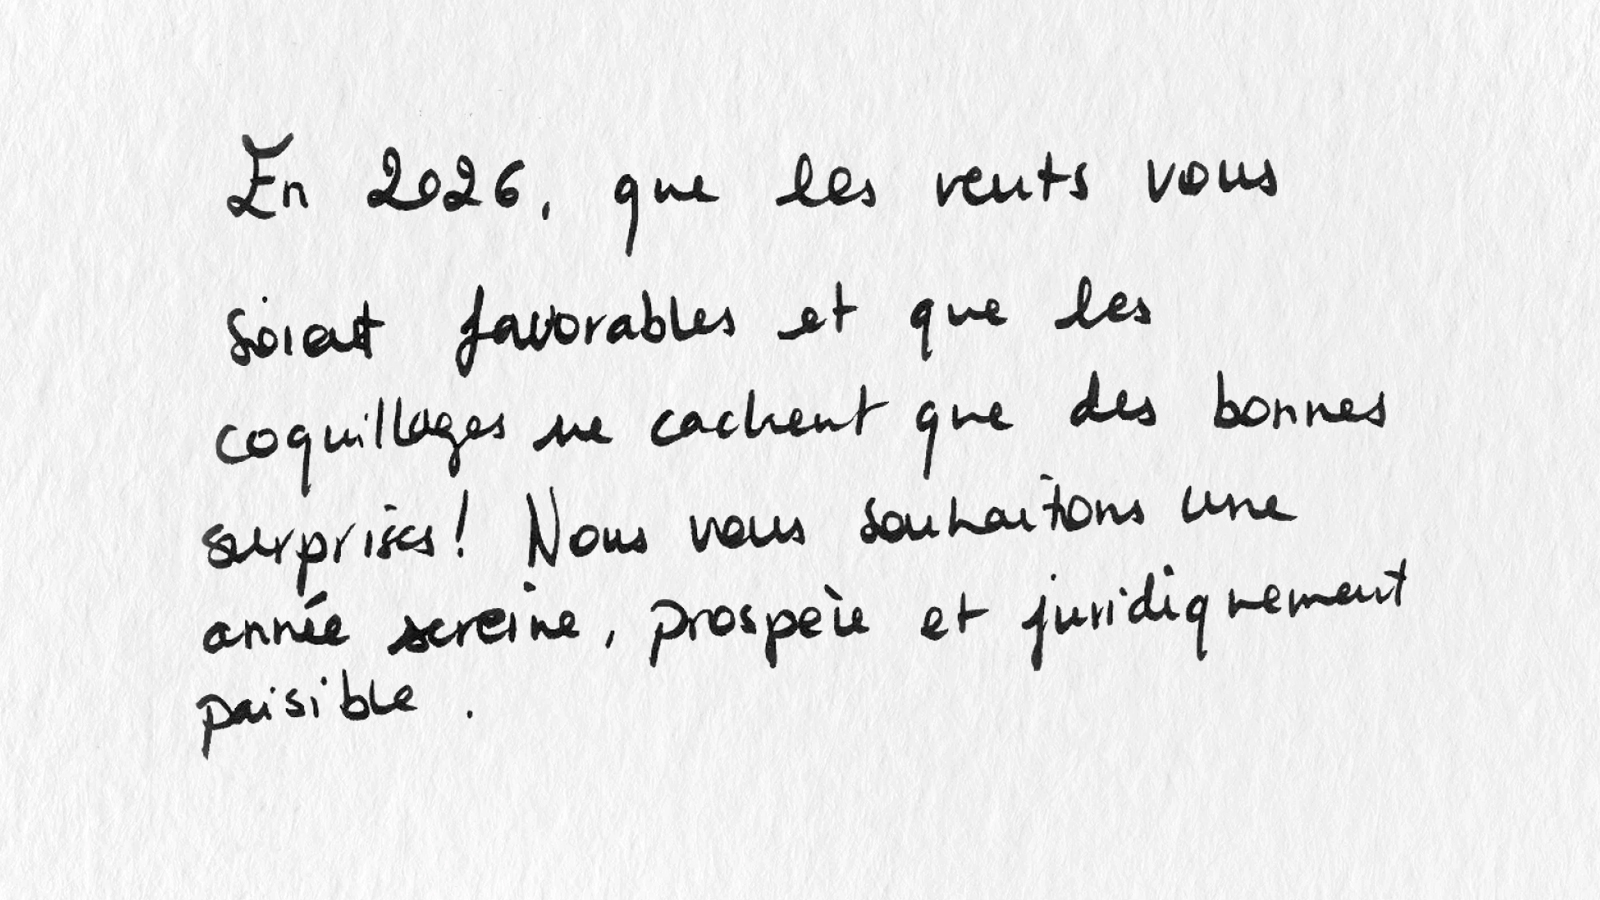 En 2026, que les vents vous
soient favorables et que les
coquillages ne cachent que des bonnes
surprises! Nous vous souhaitons une
année sereine, prospère et juridiquement
paisible.